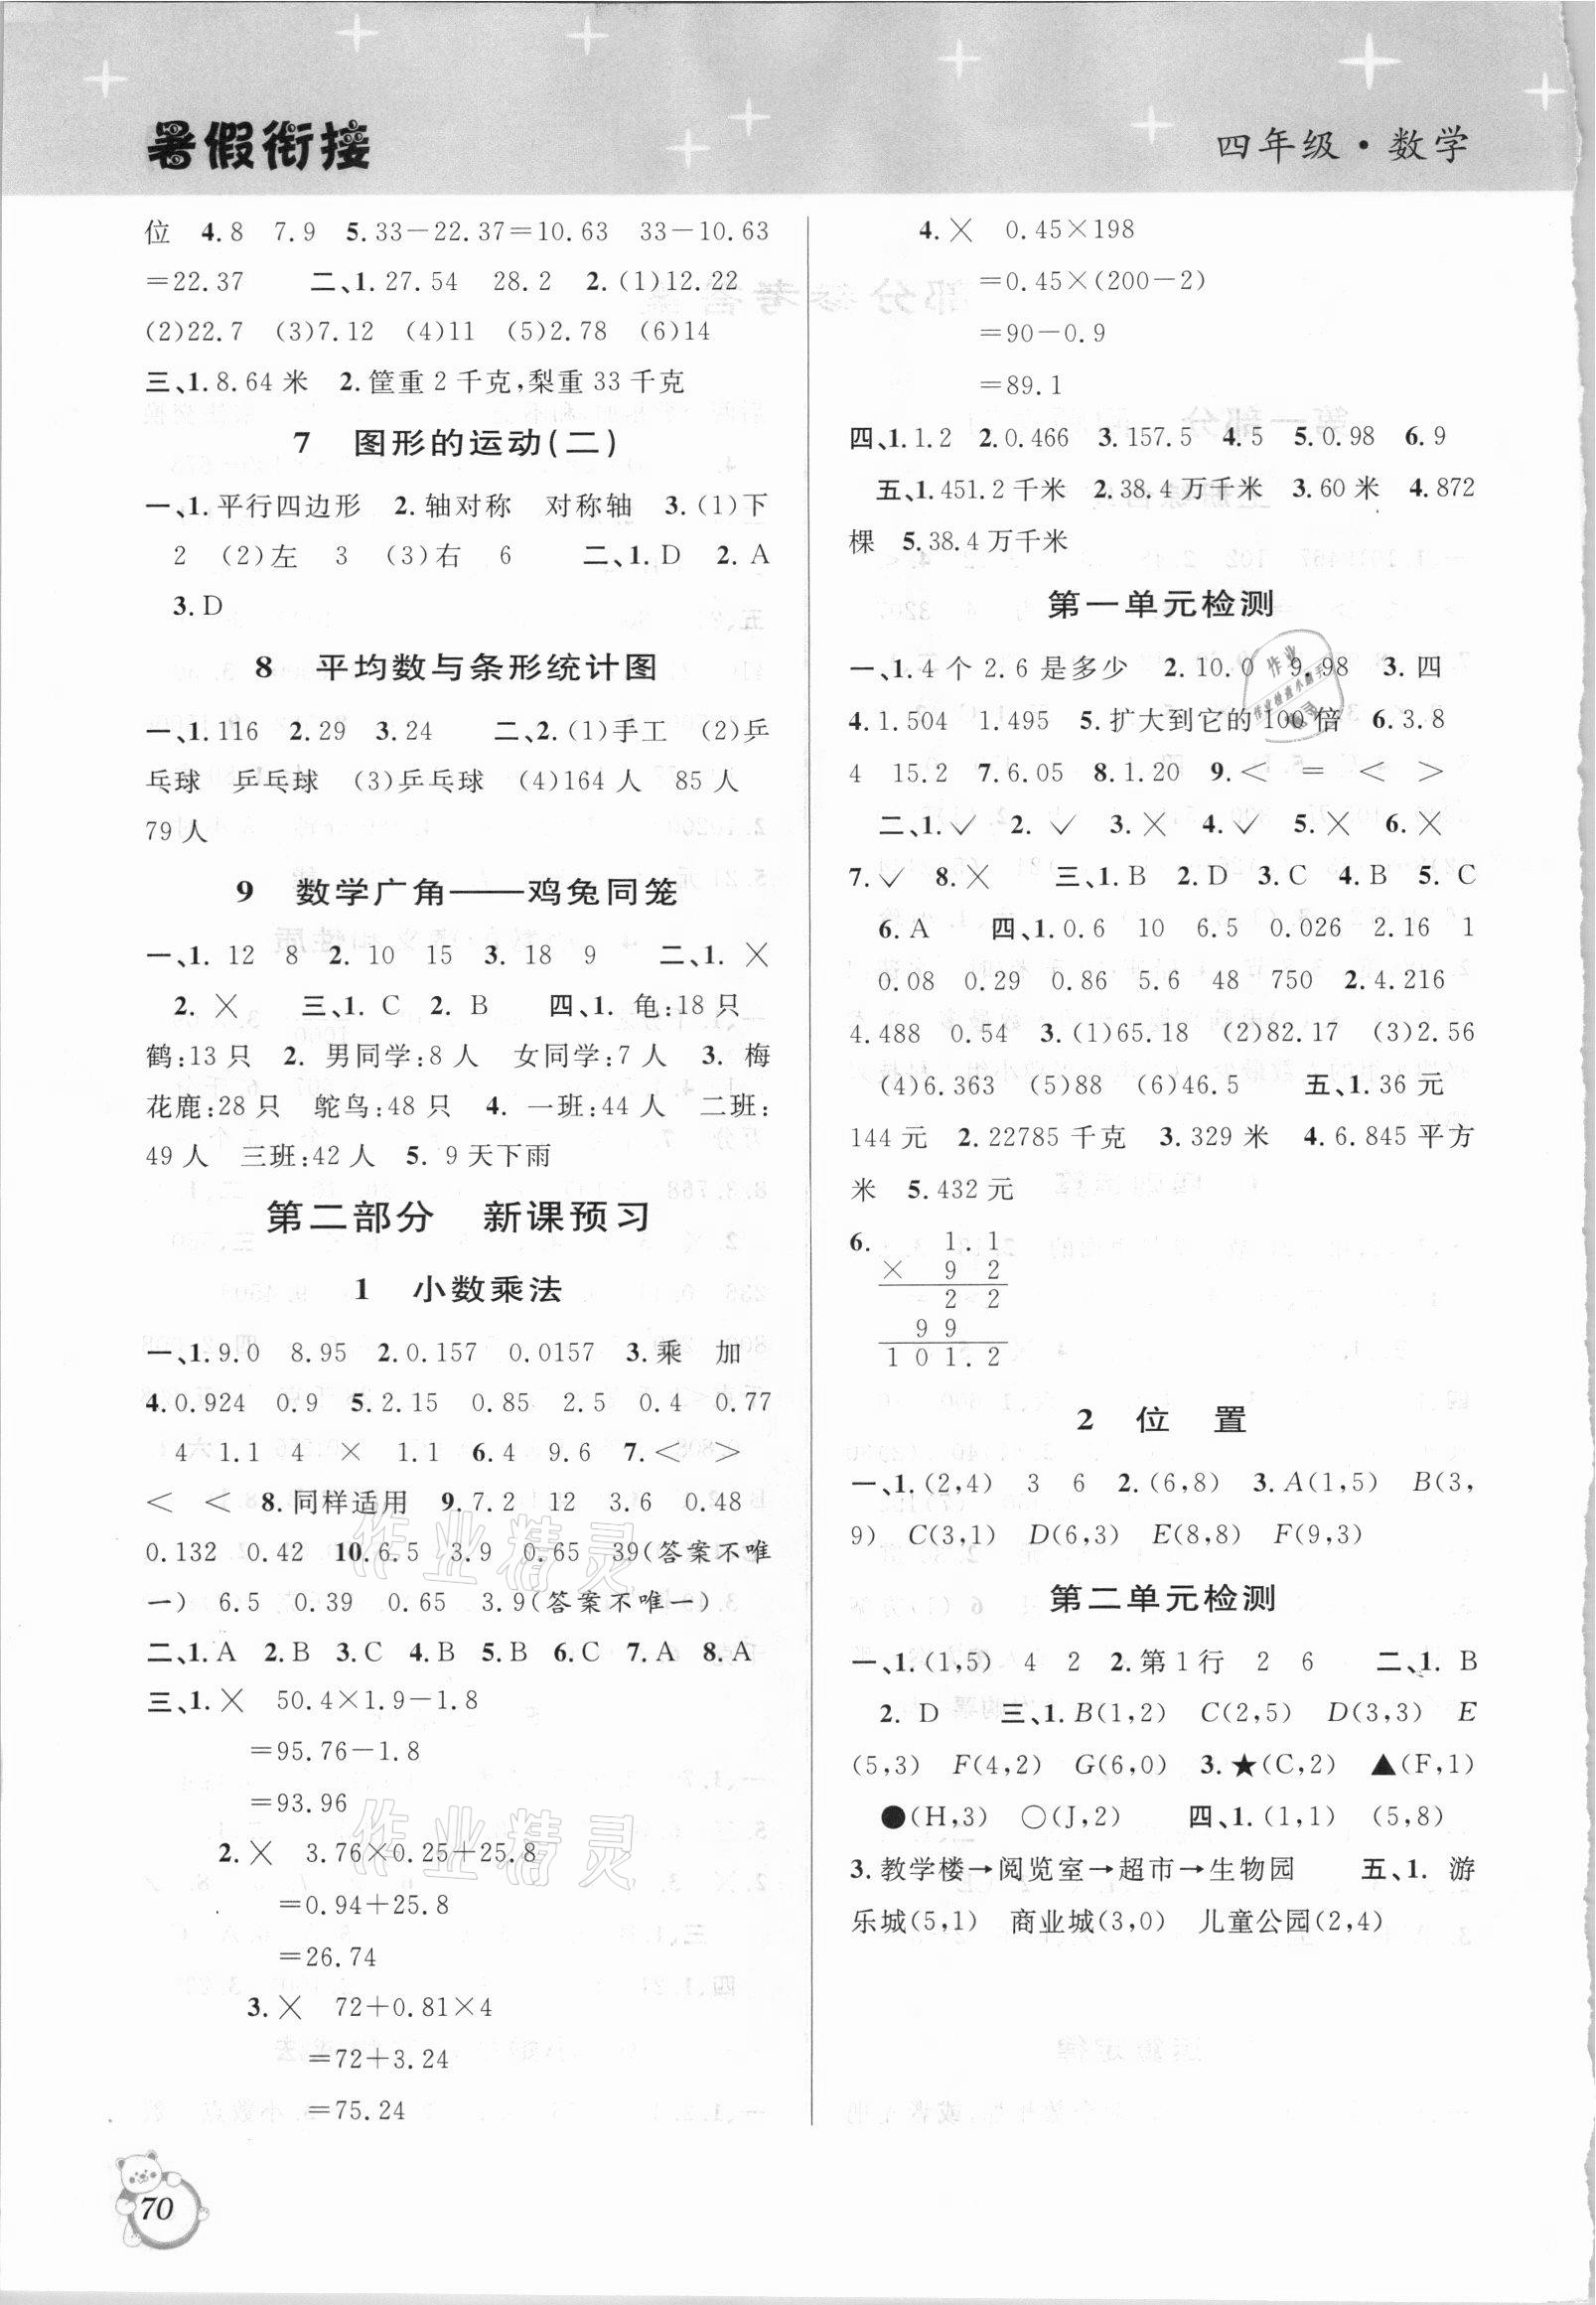 暑假衔接
四年级·数学
位 4.8 7.9 5.33-22.37=10.63 33-10.63
=22.37 二、1.27.54 28.2 2.(1)12.22
(2)22.7 (3)7.12 (4)11 (5)2.78 (6)14
三、1.8.64米 2.筐重2千克,梨重33千克
7 图形的运动(二)
一、1.平行四边形 2.轴对称 对称轴 3.(1)下
2 (2)左 3 (3)右 6 二、1.D 2.A
3.D
8 平均数与条形统计图
一、1.116 2.29 3.24 二、2.(1)手工 (2)乒
乓球 乒乓球 (3)乒乓球 (4)164人 85人
79人
9 数学广角——鸡兔同笼
一、1. 12 8 2. 10 15 3. 18 9 二、1. ×
2. × 三、1. C 2. B 四、1. 龟:18只
鹤:13只 2. 男同学:8人 女同学:7人 3. 梅
花鹿:28只 鸵鸟:48只 4. 一班:44人 二班:
49人 三班:42人 5. 9天下雨
第二部分 新课预习
1 小数乘法
一、1.9.0 8.95 2.0.157 0.0157 3.乘 加
4.0.924 0.9 5.2.15 0.85 2.5 0.4 0.77
4 1.1 4 × 1.1 6.4 9.6 7.< >
< < 8.同样适用 9.7.2 12 3.6 0.48
0.132 0.42 10.6.5 3.9 0.65 39(答案不唯
一) 6.5 0.39 0.65 3.9(答案不唯一)
二、1.A 2.B 3.C 4.B 5.B 6.C 7.A 8.A
三、1.× 50.4×1.9-1.8
=95.76-1.8
=93.96
2.× 3.76×0.25+25.8
=0.94+25.8
=26.74
3.× 72+0.81×4
=72+3.24
=75.24
4.× 0.45×198
=0.45×(200-2)
=90-0.9
=89.1
四、1.1.2 2.0.466 3.157.5 4.5 5.0.98 6.9
五、1.451.2千米 2.38.4万千米 3.60米 4.872
棵 5.38.4万千米
第一单元检测
一、1.4个2.6是多少 2.10.0 9.98 3.四
4.1.504 1.495 5.扩大到它的100倍 6.3.8
4 15.2 7.6.05 8.1.20 9.< = < >
二、1.✓ 2.✓ 3.× 4.✓ 5.× 6.×
7.✓ 8.× 三、1.B 2.D 3.C 4.B 5.C
6.A 四、1.0.6 10 6.5 0.026 2.16 1
0.08 0.29 0.86 5.6 48 750 2.4.216
4.488 0.54 3.(1)65.18 (2)82.17 (3)2.56
(4)6.363 (5)88 (6)46.5 五、1.36元
144元 2.22785千克 3.329米 4.6.845平方
米 5.432元
6. 1.1
× 9 2
2 2
9 9
1 0 1.2
2 位 置
一、1.(2,4) 3 6 2.(6,8) 3.A(1,5) B(3,
9) C(3,1) D(6,3) E(8,8) F(9,3)
第二单元检测
一、1.(1,5) 4 2 2.第1行 2 6 二、1. B
2. D 三、1.B(1,2) C(2,5) D(3,3) E
(5,3) F(4,2) G(6,0) 3.★(C,2) ▲(F,1)
●(H,3) ○(J,2) 四、1.(1,1) (5,8)
3.教学楼→阅览室→超市→生物园 五、1. 游
乐城(5,1) 商业城(3,0) 儿童公园(2,4)
作业精灵
作业精灵
70